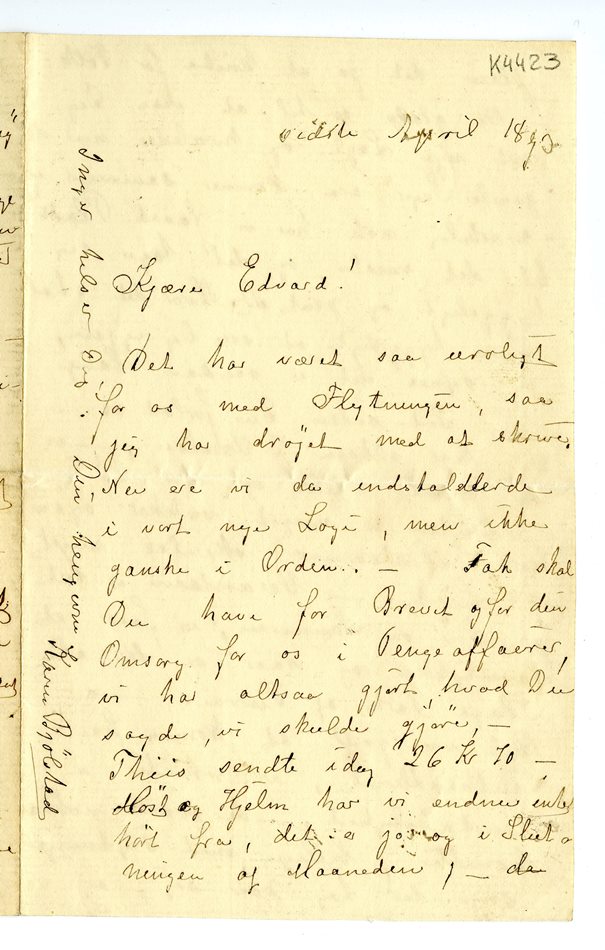 K4423
sidste April 1893
Kjære Edvard!
Det har været saa uroligt
for os med Flytningen, saa
jeg har drøjet med at skrive.
Nu ere vi da indstalderede
i vort nye Logi, men ikke
ganske i Orden. — Tak skal
Du have for Brevet og for din
Omsorg for os i Pengeaffaërer,
vi har altsaa gjørt hvad Du
sagde, vi skulde gjøre, —
Thiis sendte idag 26 Kr 70 —
Høst og Hjelm har vi endnu intet
hørt fra, det er jo og i Slut
ningen af Maaneden, — da
Inger hilser Dig. Din hengivne
Karen Bjølstad